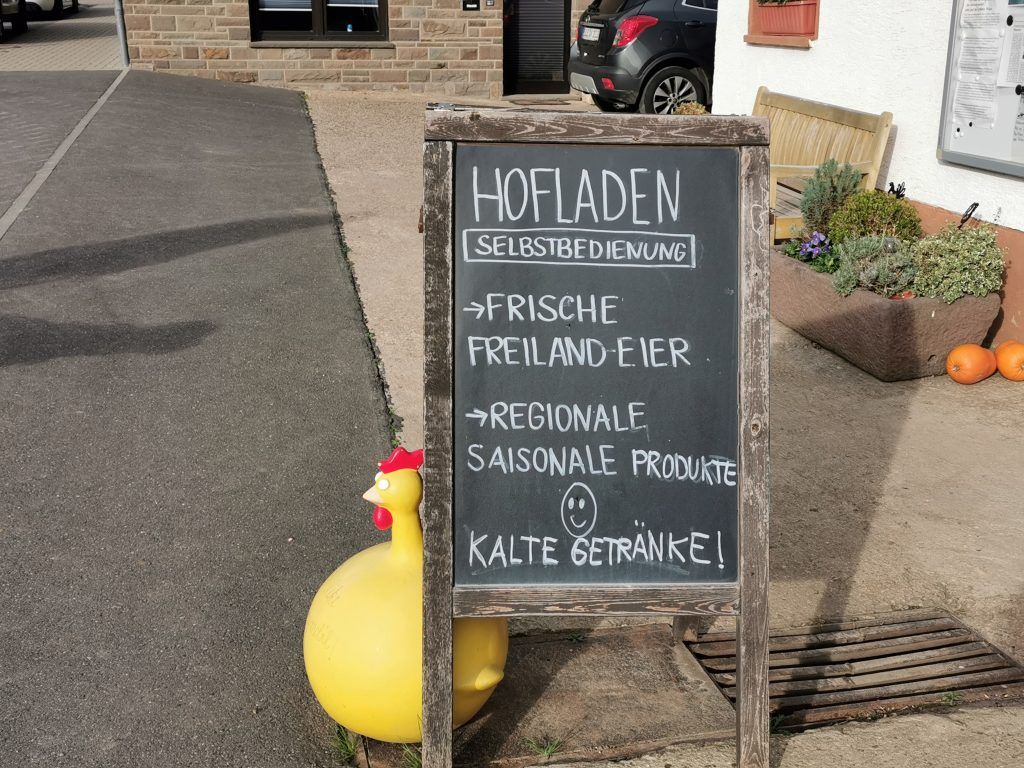 HOFLADEN
SELBSTBEDIENUNG
→FRISCHE
FREILAND-EIER
→REGIONALE
SAISONALE PRODUKTE
KALTE GETRÄNKE!